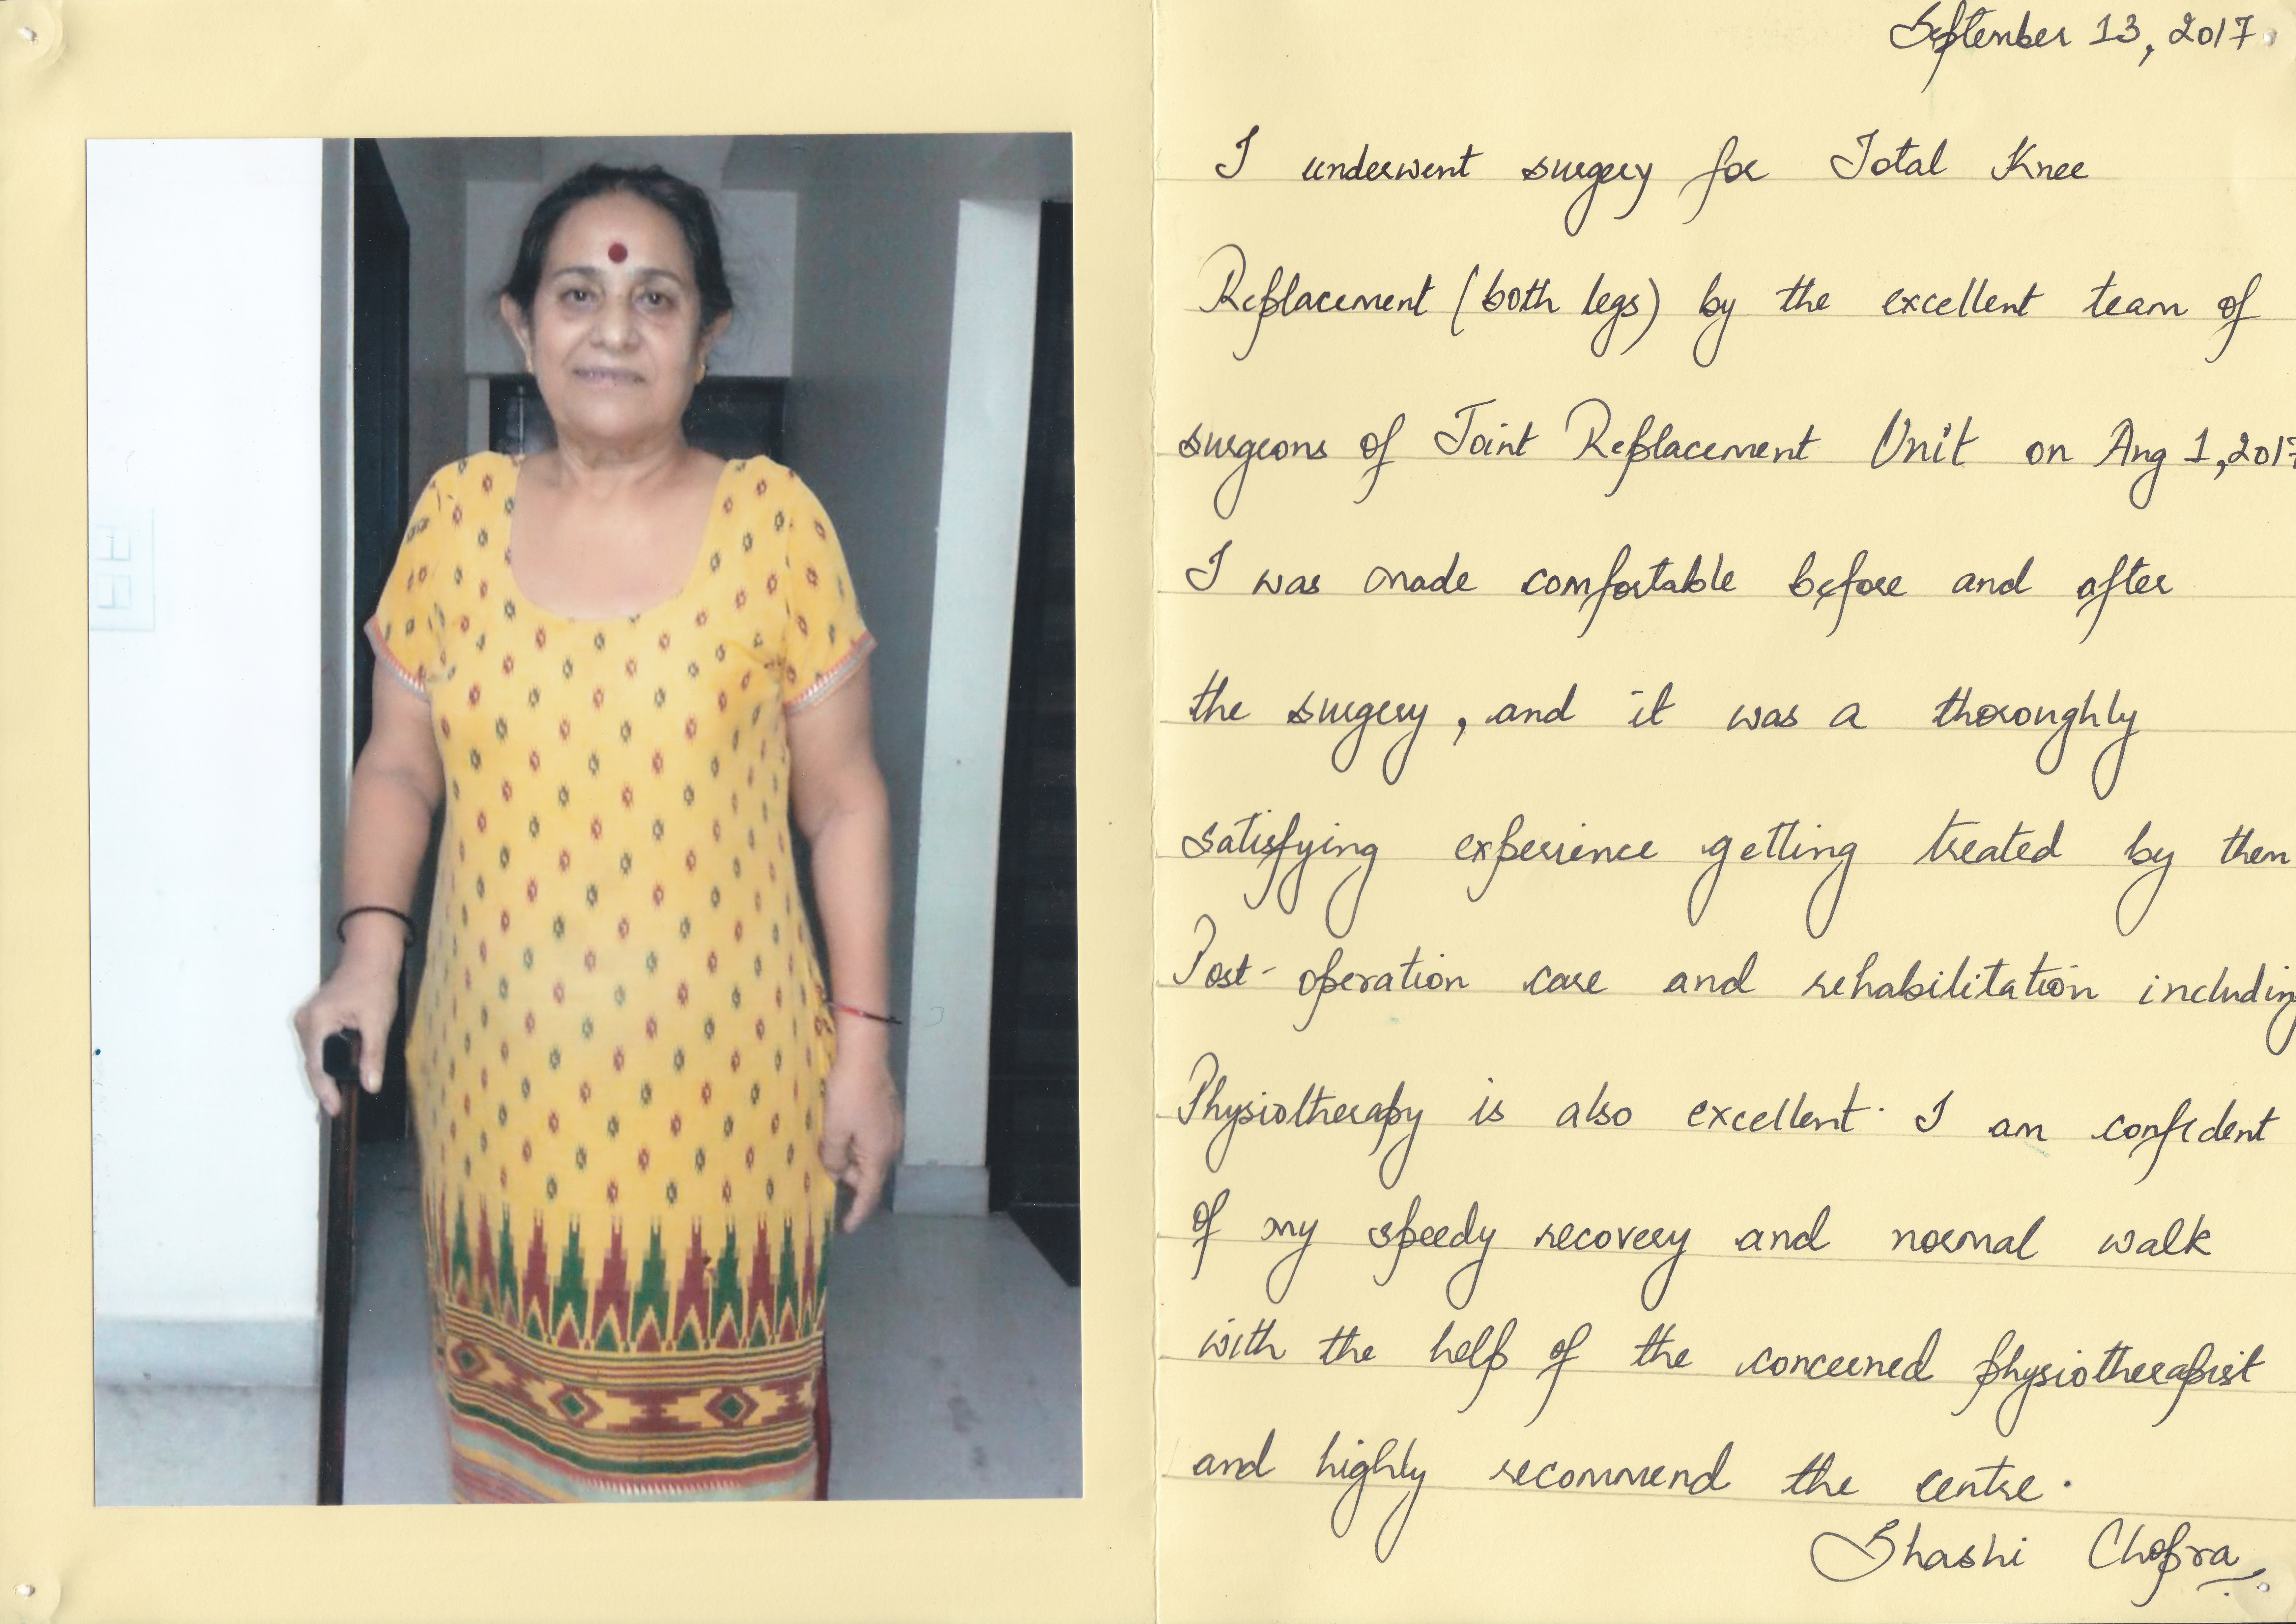 September 13, 2017
I underwent surgery for Total Knee
Replacement (both legs) by the excellent team of
surgeons of Joint Replacement Unit on Aug 1, 2017
I was made comfortable before and after
the surgery, and it was a thoroughly
satisfying experience getting treated by them
Post-operation care and rehabilitation including
Physiotherapy is also excellent. I am confident
of my speedy recovery and normal walk
with the help of the concerned physiotherapist
and highly recommend the centre.
Shashi Chopra